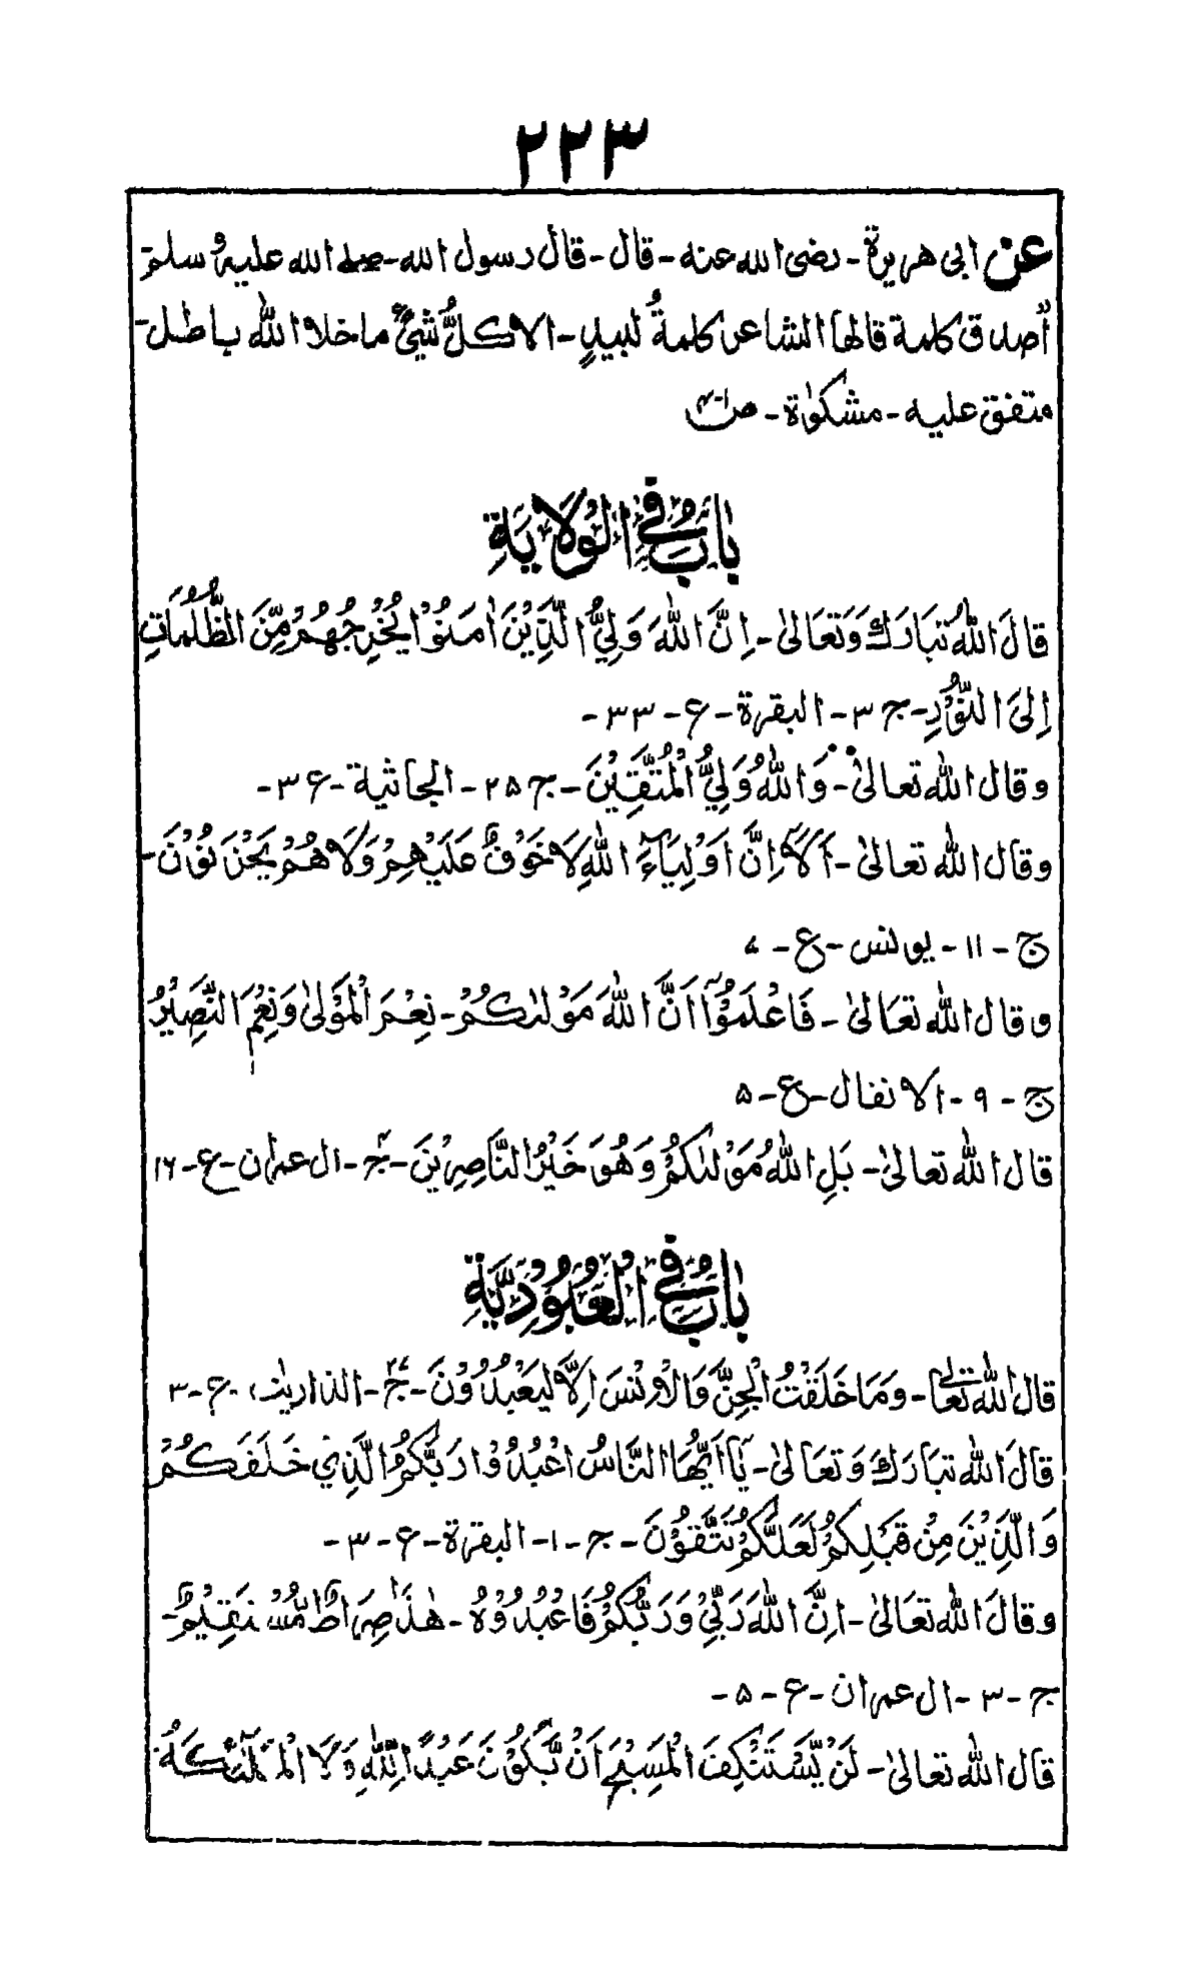 ۲۲۳
عن ابی هریرة - رضی الله عنه - قال - قال رسول الله - صلے الله علیه وسلم
أصدق کلمة قالها الشاعر کلمةُ لبیدٍ - الا کلُّ شیئٌ ما خلا اللّٰه باطل -
متفق علیه - مشکوٰة -
بَابٌ فِی الْوِلَایَةِ
قَالَ اللّٰهُ تَبَارَكَ وَتَعَالىٰ - اِنَّ اللّٰهَ وَلِيُّ الَّذِيْنَ اٰمَنُوْا يُخْرِجُهُمْ مِّنَ الظُّلُمَاتِ
اِلىَ النُّوْرِ - ج ۳ - البقرة - ع - ۳۳ -
وقال اللّٰه تعالىٰ - وَاللّٰهُ وَلِيُّ الْمُتَّقِيْنَ - ج ۲۵ - الجاثية - ع ۳ -
وقال اللّٰه تعالىٰ - اَلَا اِنَّ اَوْلِيَاءَ اللّٰهِ لَا خَوْفٌ عَلَيْهِمْ وَلَا هُمْ يَحْزَنُوْنَ -
ج - ۱۱ - يونس - ع - ۷
وقال اللّٰه تعَالىٰ - فَاعْلَمُوْآ اَنَّ اللّٰهَ مَوْلٰىكُمْ - نِعْمَ الْمَوْلىٰ وَنِعْمَ النَّصِيْرُ
ج - ۹ - الانفال - ع - ۵
قال اللّٰه تعالىٰ - بَلِ اللّٰهُ مَوْلٰىكُمْ وَهُوَ خَيْرُ النَّاصِرِيْنَ - ج۴ - ال عمران - ع - ۱۶
بَابٌ فِی الْعُبُوْدِيَّةِ
قال اللّٰه تعالىٰ - وَمَا خَلَقْتُ الْجِنَّ وَالْاِنْسَ اِلَّا لِيَعْبُدُوْنَ - ج۲۷ - الذاريٰت - ع - ۳
قَالَ اللّٰه تبَارَكَ وَتعَالىٰ - يَا اَيُّهَا النَّاسُ اعْبُدُوْا رَبَّكُمُ الَّذِيْ خَلَقَكُمْ
وَالَّذِيْنَ مِنْ قَبْلِكُمْ لَعَلَّكُمْ تَتَّقُوْنَ - ج - ۱ - البقرة - ع - ۳ -
وقالَ اللّٰه تعَالىٰ - اِنَّ اللّٰهَ رَبِّيْ وَرَبُّكُمْ فَاعْبُدُوْهُ - هٰذَا صِرَاطٌ مُّسْتَقِيْمٌ -
ج - ۳ - ال عمران - ع - ۵ -
قال اللّٰه تعالىٰ - لَنْ يَّسْتَنْكِفَ الْمَسِيْحُ اَنْ يَّكُوْنَ عَبْدًا لِّلّٰهِ وَلَا الْمَلٰٓئِكَةُ